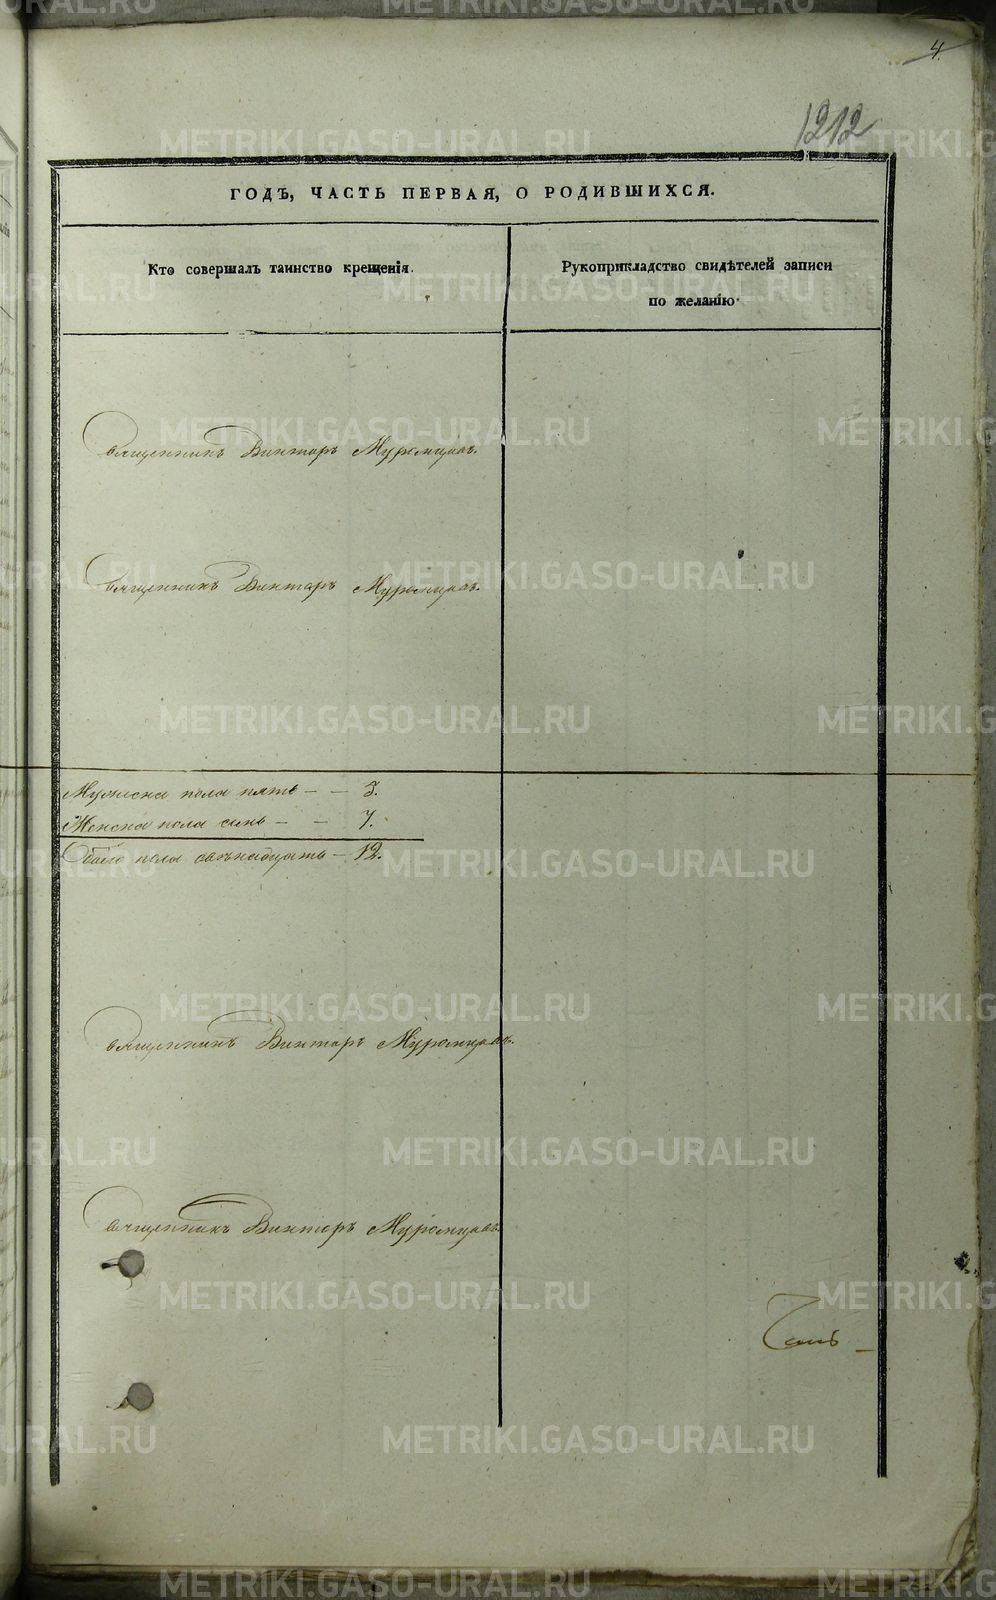 4.
1212
ГОДЪ, ЧАСТЬ ПЕРВАЯ, О РОДИВШИХСЯ.
Кто совершалъ таинство крещенія.
Рукоприкладство свидѣтелей записи
по желанію.
Священникъ Викторъ Муромцовъ.
Священникъ Викторъ Муромцовъ.
Мужеска пола пять — — 5.
Женска пола семь — — 7.
Обоего пола двѣнадцать — 12.
Священникъ Викторъ Муромцовъ.
Священникъ Викторъ Муромцовъ
METRIKI.GASO-URAL.RU